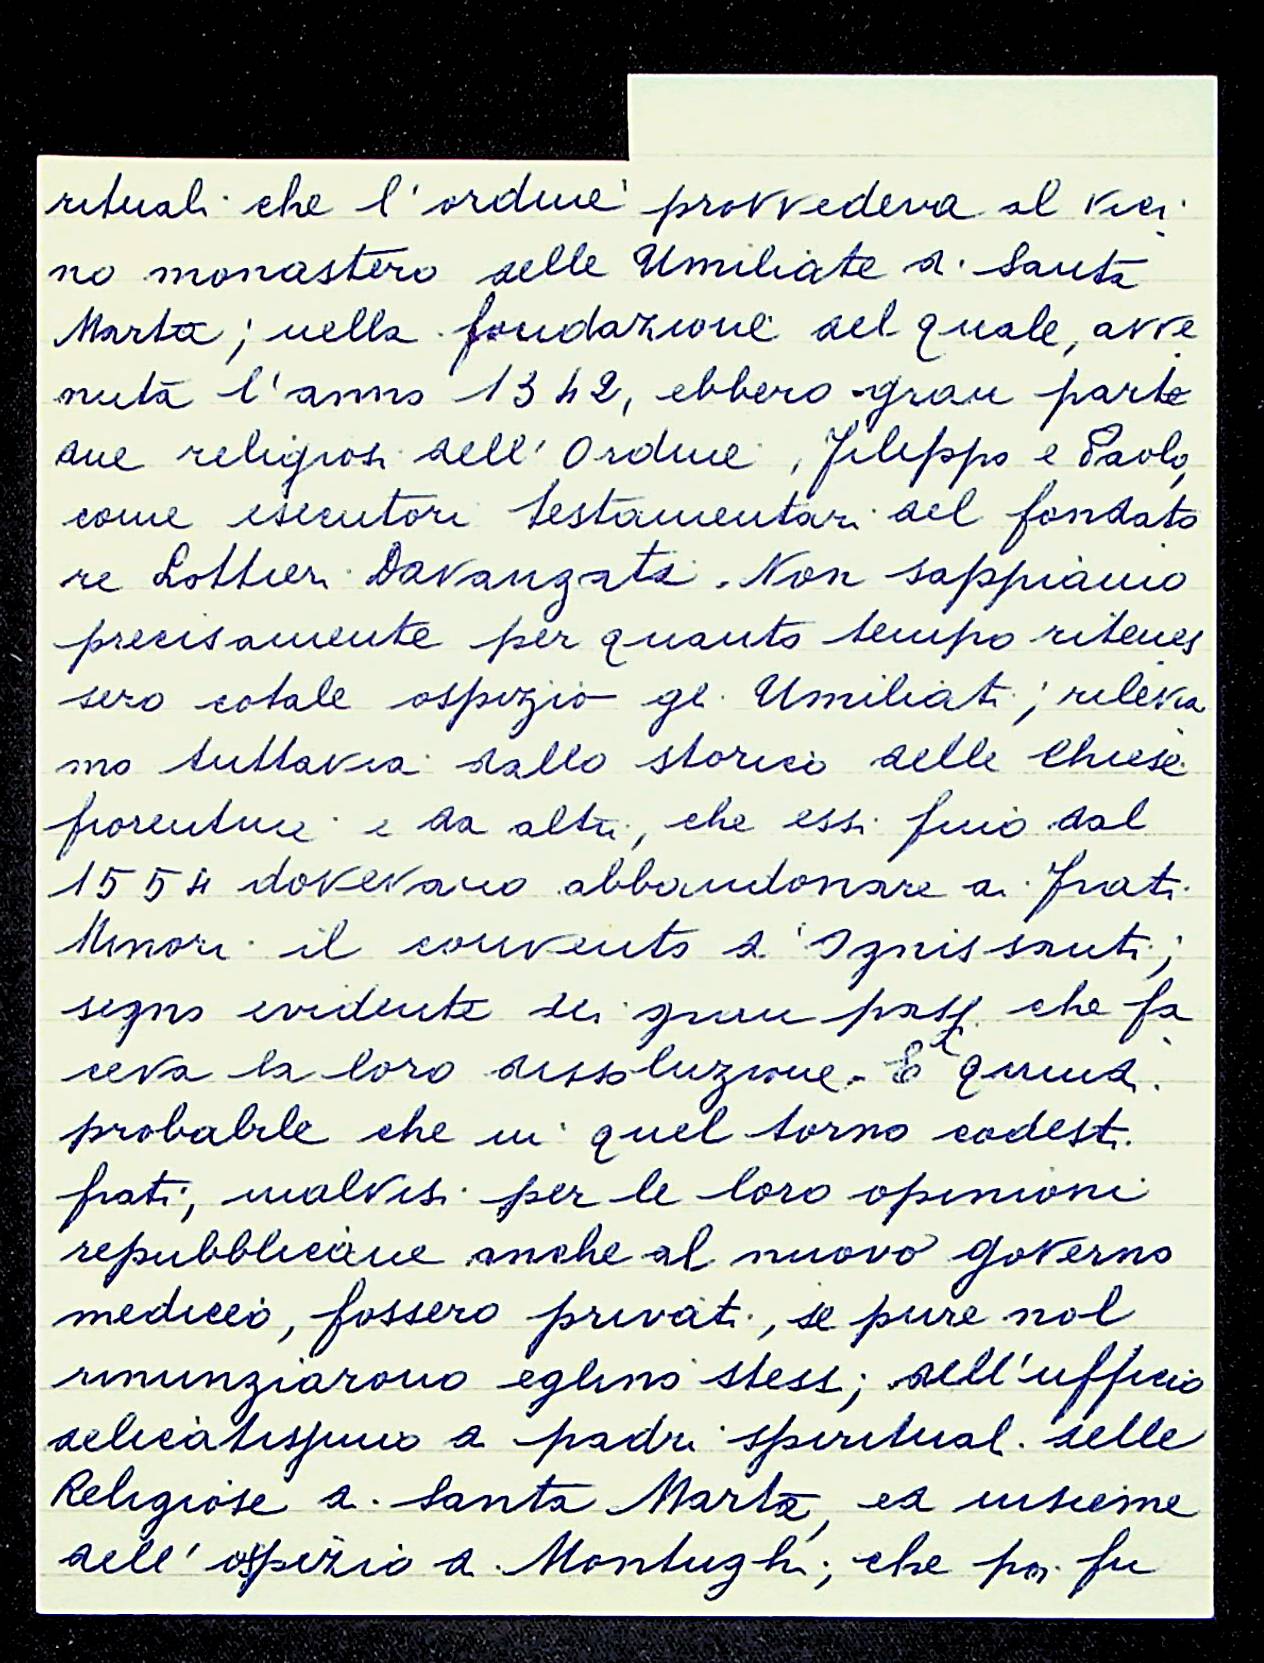 rituali che l'ordine provvedeva al vici
no monastero delle Umiliate di Santa
Marta; nella fondazione del quale, avve
nuta l'anno 1342, ebbero gran parte
due religiosi dell'Ordine, Filippo e Paolo,
come esecutori testamentari del fondato
re Lottieri Davanzati. Non sappiamo
precisamente per quanto tempo ritenes
sero cotale ospizio gli Umiliati; rilevia
mo tuttavia dallo storico delle Chiese
fiorentine e da altri, che essi fino dal
1554 dovevano abbandonare ai Frati
Minori il convento d'Ognissanti;
segno evidente dei gran passi che fa
ceva la loro dissoluzione. È quindi
probabile che in quel torno codesti
frati, malvisi per le loro opinioni
repubblicane anche al nuovo governo
mediceo, fossero privati, se pure nol
rinunziarono eglino stessi; dell'ufficio
delicatissimo di padri spirituali delle
Religiose di Santa Marta, ed insieme
dell'ospizio di Montughi; che poi fu